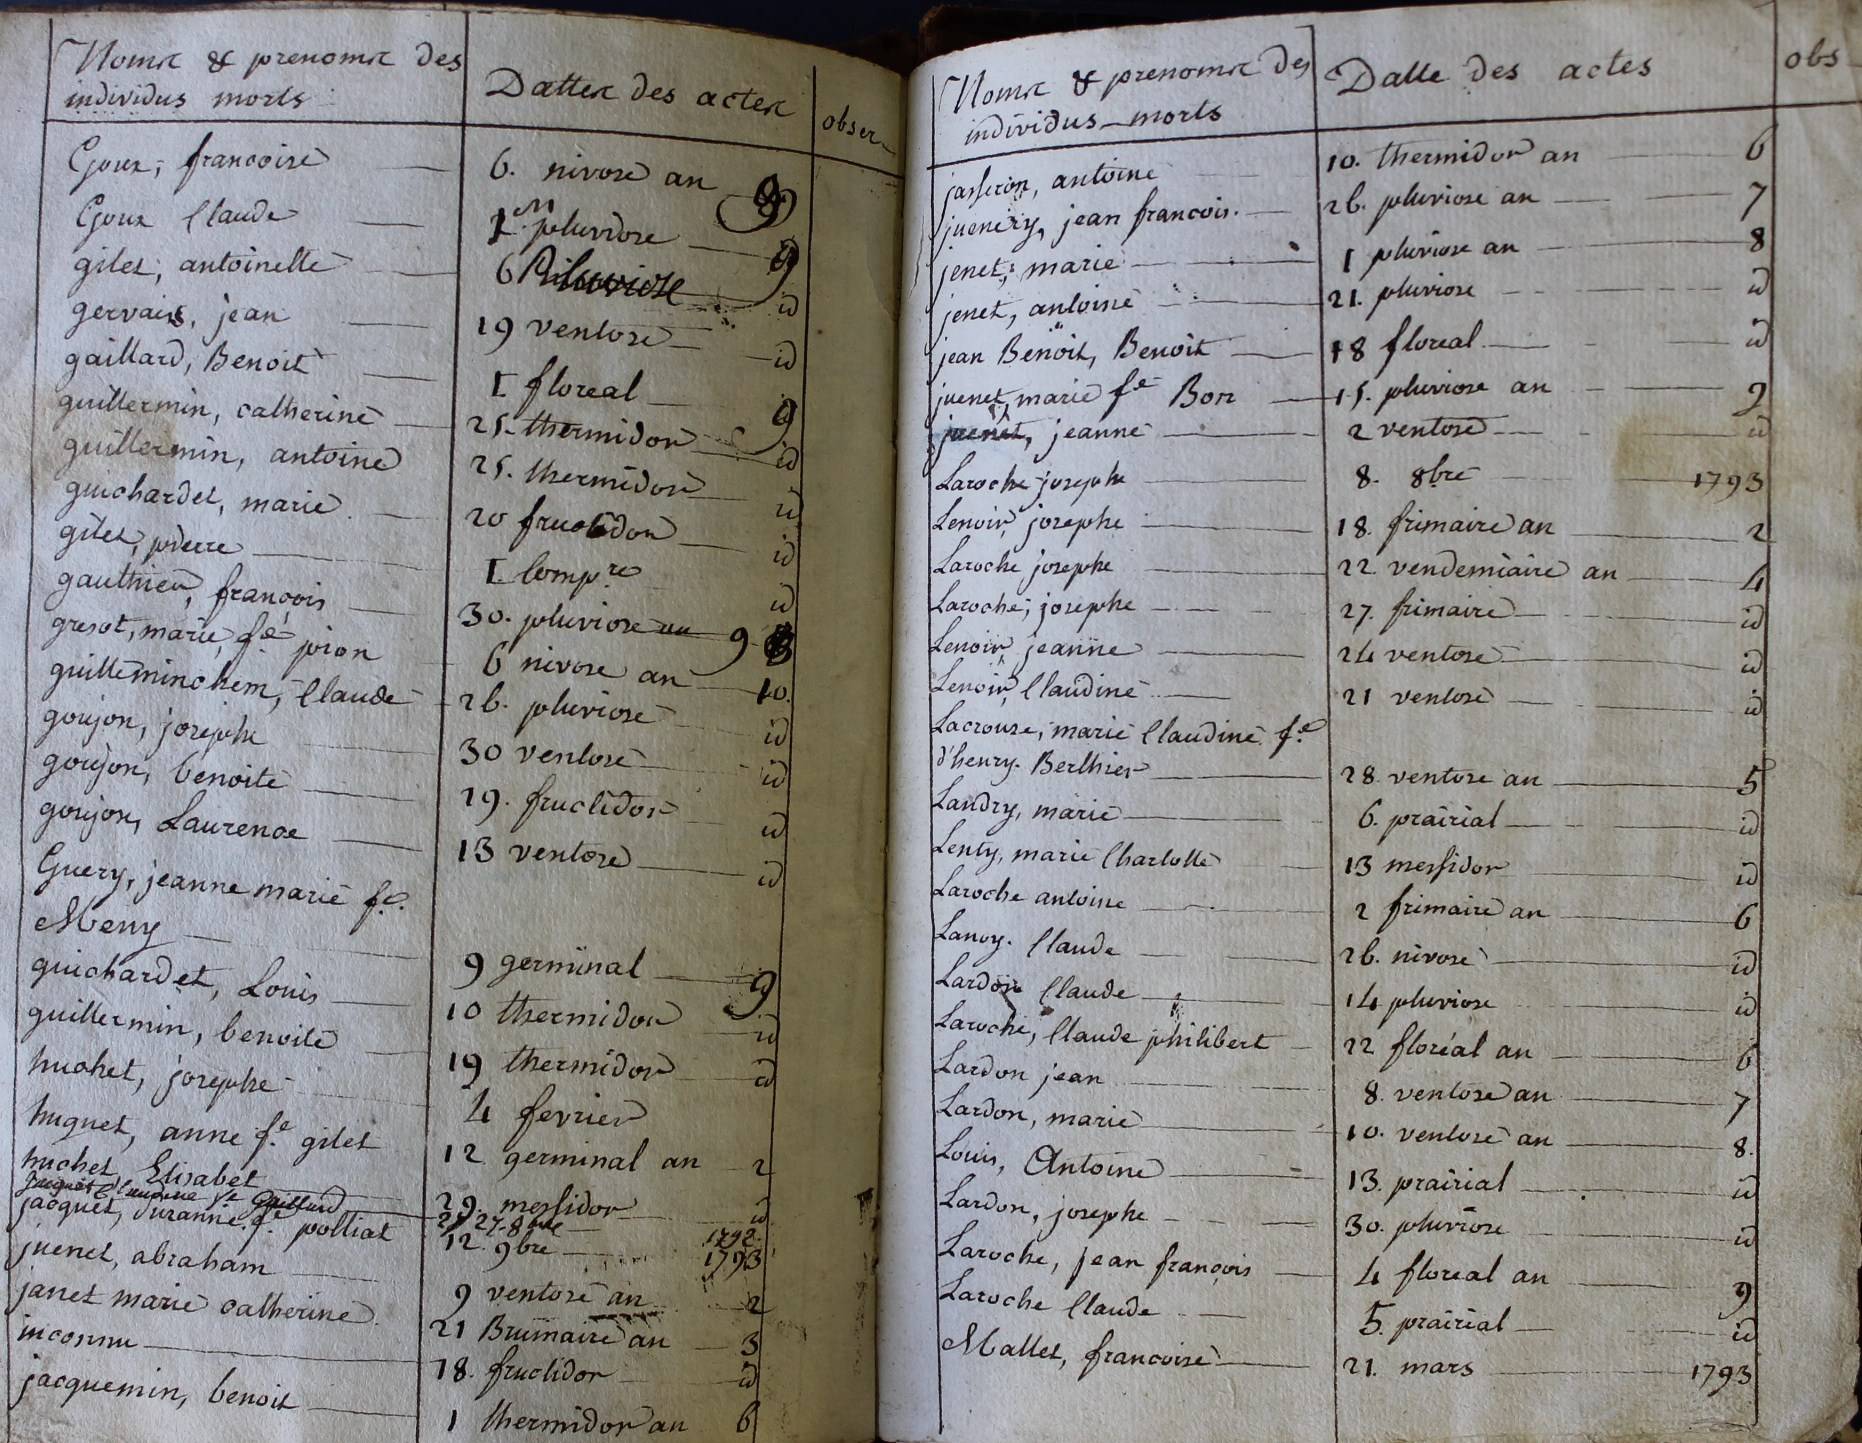 Noms & prenoms des
individus morts
Dattes des actes
obser
Goux, francoise 6. nivose an 9
Goux Claude 1er pluviose 9
gilet, antoinette 6 Pluviose id
gervais, jean 19 ventose id
gaillard, Benoit 1 floreal 9
guillermin, catherine 25. thermidor id
guillermin, antoine 25. thermidor id
guichardet, marie 20 fructidor id
gilet, pierre 1 Compre id
gauthier, francois 30. pluviose an 9
gresot, marie, fe pion 6 nivose an 10.
guilleminchem, Claude 26. pluviose id
goujon, josephe 30 ventose id
goujon, benoite 29. fructidor id
goujon, Laurence 13 ventose id
Guery, jeanne marie fe.
Meny 9 germinal 9
guichardet, Louis 10 thermidor id
guillermin, benoite 19 thermidor id
huchet, josephe 4 fevrier
huguet, anne fe gilet 12 germinal an 2
huchet, Elisabet 29. messidor id
Jacquet fe Gaillard 27 8bre 1792
jacquet, suzanne fe polliat 12. 9bre 1793
juenet, abraham 9 ventose an 2
janet marie catherine 21 Brumaire an 3
inconnu 18. fructidor id
jacquemin, benoit 1 thermidor an 6
Noms & prenoms des
individus morts
Datte des actes
obs
jasseron, antoine 10. thermidor an 6
juenery, jean francois. 26. pluviose an 7
jenet, marie 1 pluviose an 8
jenet, antoine 21. pluviose id
jean Benoit, Benoit 18 floreal id
juenet, marie fe Bon 15. pluviose an 9
juenet, jeanne 2 ventose id
Laroche josephe 8. 8bre 1793
Lenoir, josephe 18. frimaire an 2
Laroche josephe 22 vendemiaire an 4
Laroche, josephe 27. frimaire id
Lenoir, jeanne 24 ventose id
Lenoir, Claudine 21 ventose id
Lacrouse, marie Claudine fe
d'henry. Berthier 28. ventose an 5
Landry, marie 6. prairial id
Lenty, marie Charlotte 13 messidor id
Laroche antoine 2 frimaire an 6
Lanoy. Claude 26. nivose id
Lardon Claude 14 pluviose id
Laroche, Claude philibert 22 floréal an 6
Lardon jean 8. ventose an 7
Lardon, marie 10. ventose an 8.
Louis, Antoine 13. prairial id
Lardon, josephe 30. pluviose id
Laroche, jean françois 4 floreal an 9
Laroche Claude 5. prairial id
Mallet, francoise 21. mars 1793